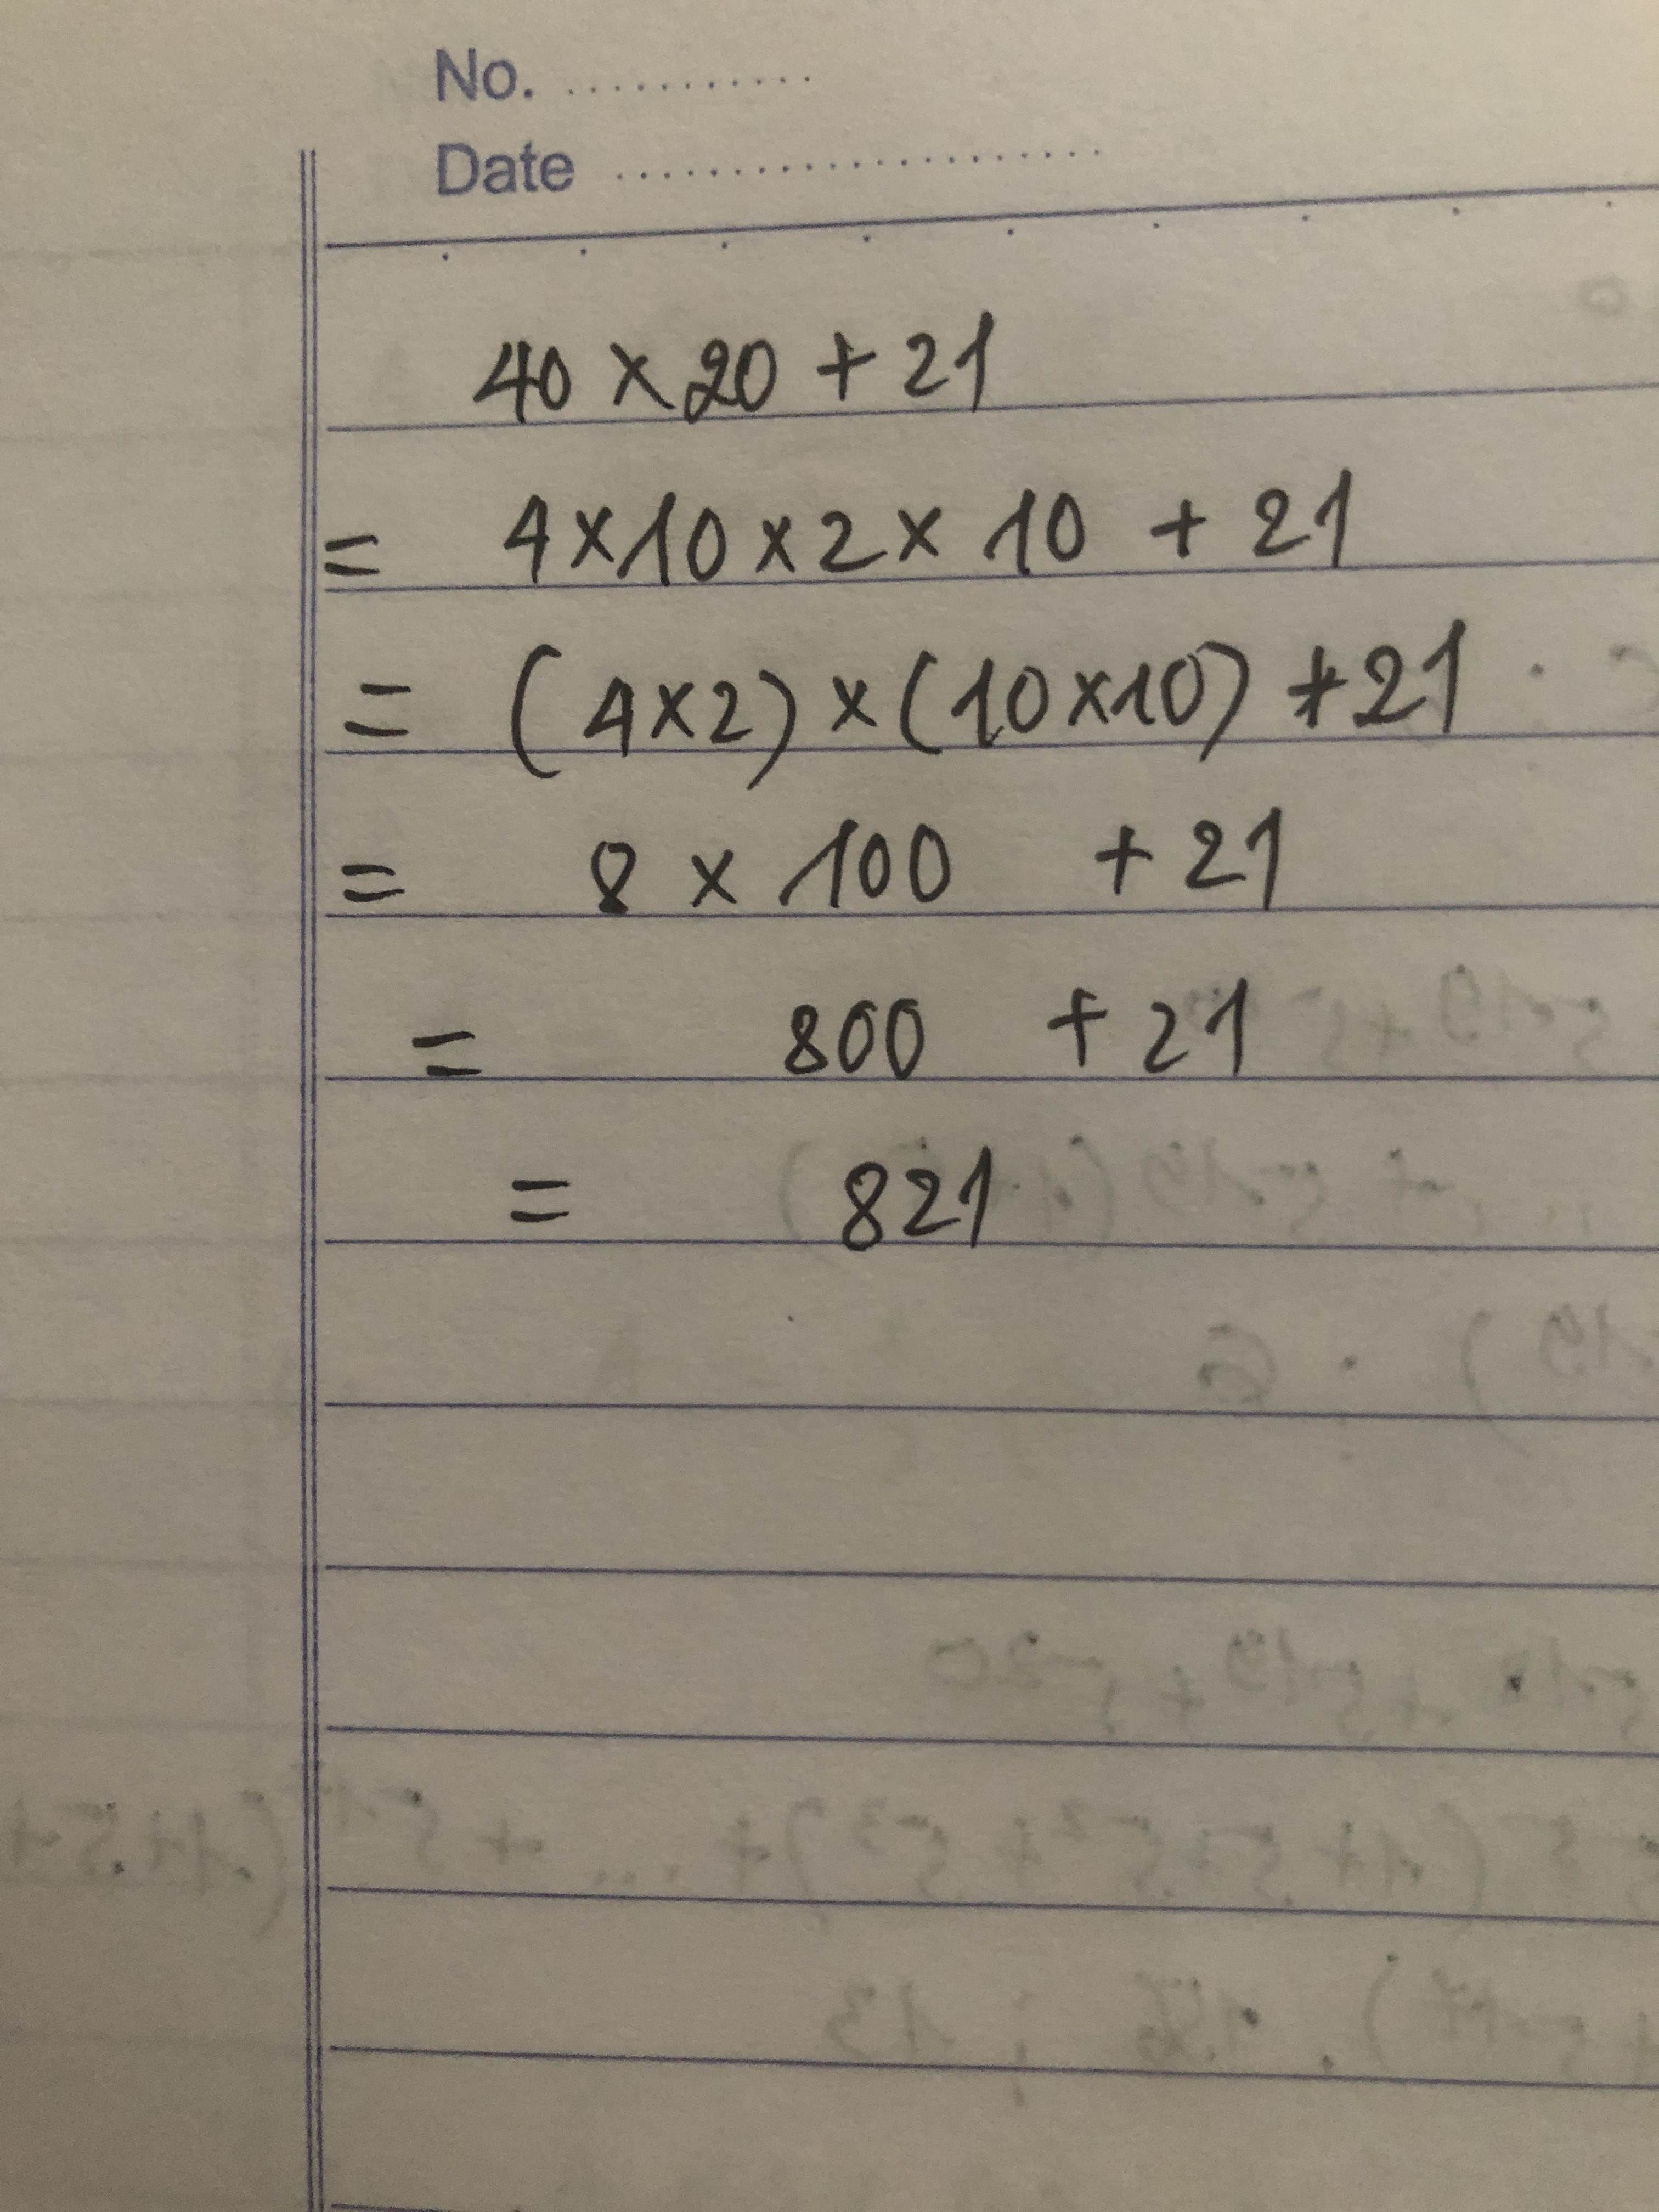 No. ...........
Date .....................
40 × 20 + 21
= 4 × 10 × 2 × 10 + 21
= (4 × 2) × (10 × 10) + 21
= 8 × 100 + 21
= 800 + 21
= 821